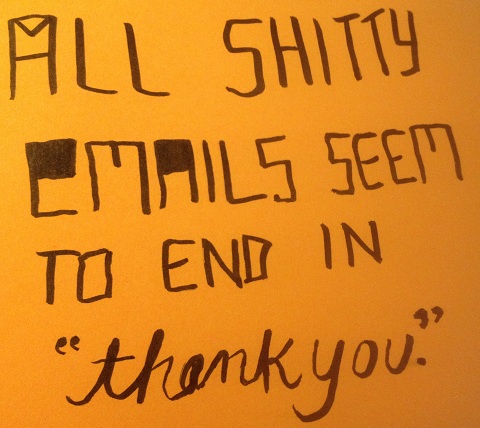 ALL SHITTY
EMAILS SEEM
TO END IN
"thank you."